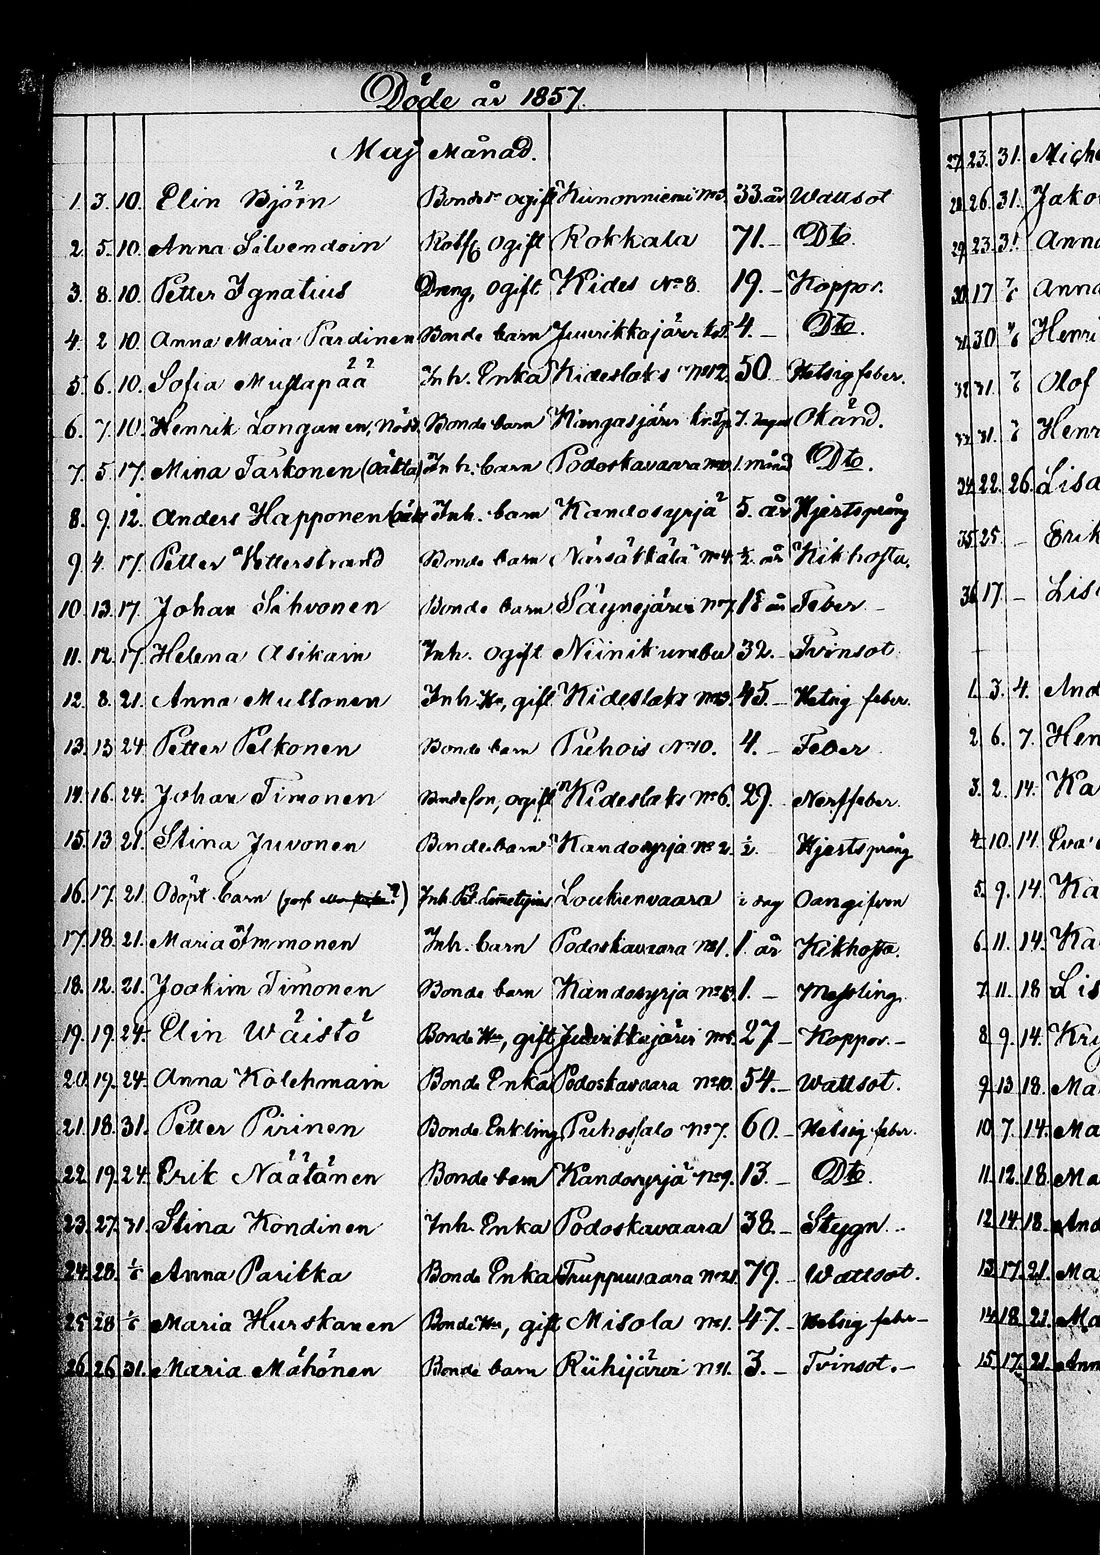 Döde år 1857.
Maj Månad.
1. 3. 10. Elin Björn Bondedr ogift Kunonniemi No 3. 33. år Wattsot
2. 5. 10. Anna Silvendoin Rothj ogift Rokkala 71. - Dto.
3. 8. 10. Petter Ignatius Dreng, ogift Kides No 8. 19. - Koppor.
4. 2 10. Anna Maria Pardinen Bonde barn Juurikkajärvi 4. - Dto.
5. 6. 10. Sofia Mustapää Inh. Enka Kideslaks No 12 50 Hetsig feber.
6. 7. 10. Henrik Longanen, Bonde barn Kangasjärvi 7. Okänd.
7. 5 17. Mina Tarkonen (oäkta) Inh. barn Podoskavaara 1. månad Dto.
8. 9. 12. Anders Happonen Inh. barn Kandosyrjä 5. år Hjertsprång
9. 4. 17. Petter Vetterstrand Bonde barn Närsäkkälä No 4. ½. år Kikhosta.
10. 13. 17. Johan Sihvonen Bonde barn Säynejärvi No 7. Feber -
11. 12. 17. Helena Asikain Inh. ogift Niinikumbu 32. - Tvinsot.
12. 8. 21. Anna Multonen Inh. Hu, gift Kideslaks No 3. 45. - Hetsig feber.
13. 13 24 Petter Pelkonen Bonde barn Puhois No 10. 4. - Feber
14. 16. 24. Johan Timonen Bondeson, ogift Kideslaks No 6. 29. - Nerffeber.
15. 13 21. Stina Juvonen Bonde barn Kandosyrja No 2. ½. Hjertsprång
16. 17. 21. Odöpt barn Inh. Loukunvaara 1 dag Oangifven
17. 18. 21. Maria Immonen Inh. barn Podoskavaara No 1. 1. år Kikhosta.
18. 12. 21. Joakim Timonen Bonde barn Kandosyrja 1. - Messling.
19. 19. 24. Elin Wäistö Bonde Hu, gift Juurikkajärvi 27 - Koppor. -
20. 19. 24. Anna Kolehmain Bonde Enka Podoskavaara No 10. 54. - Wattsot.
21. 18. 31. Petter Pirinen Bonde Enkling Puhossalo No 7. 60. - Hetsig feber.
22. 19. 24. Erik Näätänen Bonde barn Kandosyrjä No 9. 13. - Dto.
23. 27. 31. Stina Kondinen Inh. Enka Podoskavaara 38. - Stygn. -
24. 28. 1/6 Anna Parikka Bonde Enka Truppuvaara No 21. 79. - Wattsot.
25. 28 1/6 Maria Hurskanen Bonde Hu, gift Misola No 1. 47. - Hetsig feber -
26. 26 31. Maria Mähönen Bonde barn Riihijärvi No 1. 3. - Tvinsot. -
27. 23. 31.
28. 26. 31.
29. 23. 31. Anna
30. 17 7/6 Anna
31. 30 7/6
32. 31. 7/6 Olof
33. 31. 7/6
34. 22. 26. Lisa
35. 25. - Erik
36. 17. -
1. 3. 4.
2. 6. 7.
3. 2. 14.
4. 10. 14.
5. 9. 14.
6. 11. 14.
7. 11. 18
8. 9. 14.
9. 13 18.
10. 7. 14.
11. 12. 18.
12. 14. 18.
13. 17. 21.
14. 18. 21.
15. 17. 21.